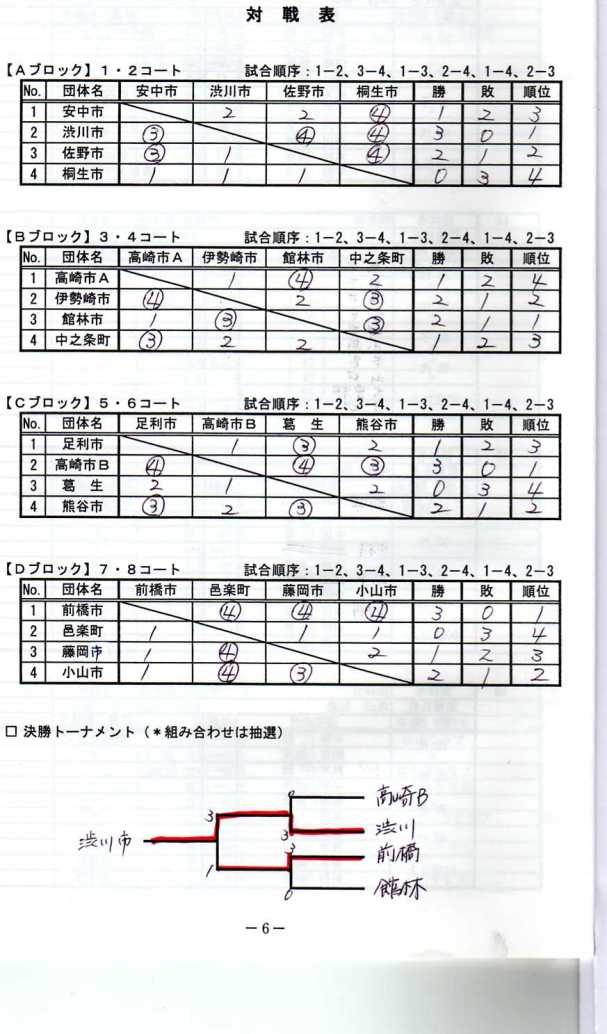 対 戦 表
【Aブロック】1・2コート 試合順序：1－2、3－4、1－3、2－4、1－4、2－3
No. 団体名 安中市 渋川市 佐野市 桐生市 勝 敗 順位
1 安中市 2 2 ④ 1 2 3
2 渋川市 ③ ④ ④ 3 0 1
3 佐野市 ③ 1 ④ 2 1 2
4 桐生市 1 1 1 0 3 4
【Bブロック】3・4コート 試合順序：1－2、3－4、1－3、2－4、1－4、2－3
No. 団体名 高崎市A 伊勢崎市 館林市 中之条町 勝 敗 順位
1 高崎市A 1 ④ 2 1 2 4
2 伊勢崎市 ④ 2 ③ 2 1 2
3 館林市 1 ③ ③ 2 1 1
4 中之条町 ③ 2 2 1 2 3
【Cブロック】5・6コート 試合順序：1－2、3－4、1－3、2－4、1－4、2－3
No. 団体名 足利市 高崎市B 葛 生 熊谷市 勝 敗 順位
1 足利市 1 ③ 2 1 2 3
2 高崎市B ④ ④ ③ 3 0 1
3 葛 生 2 1 2 0 3 4
4 熊谷市 ③ 2 ③ 2 1 2
【Dブロック】7・8コート 試合順序：1－2、3－4、1－3、2－4、1－4、2－3
No. 団体名 前橋市 邑楽町 藤岡市 小山市 勝 敗 順位
1 前橋市 ④ ④ ④ 3 0 1
2 邑楽町 1 1 1 0 3 4
3 藤岡市 1 ④ 2 1 2 3
4 小山市 1 ④ ③ 2 1 2
□ 決勝トーナメント（＊組み合わせは抽選）
高崎B
3
渋川市 3 渋川
3 前橋
1
0 館林
－6－